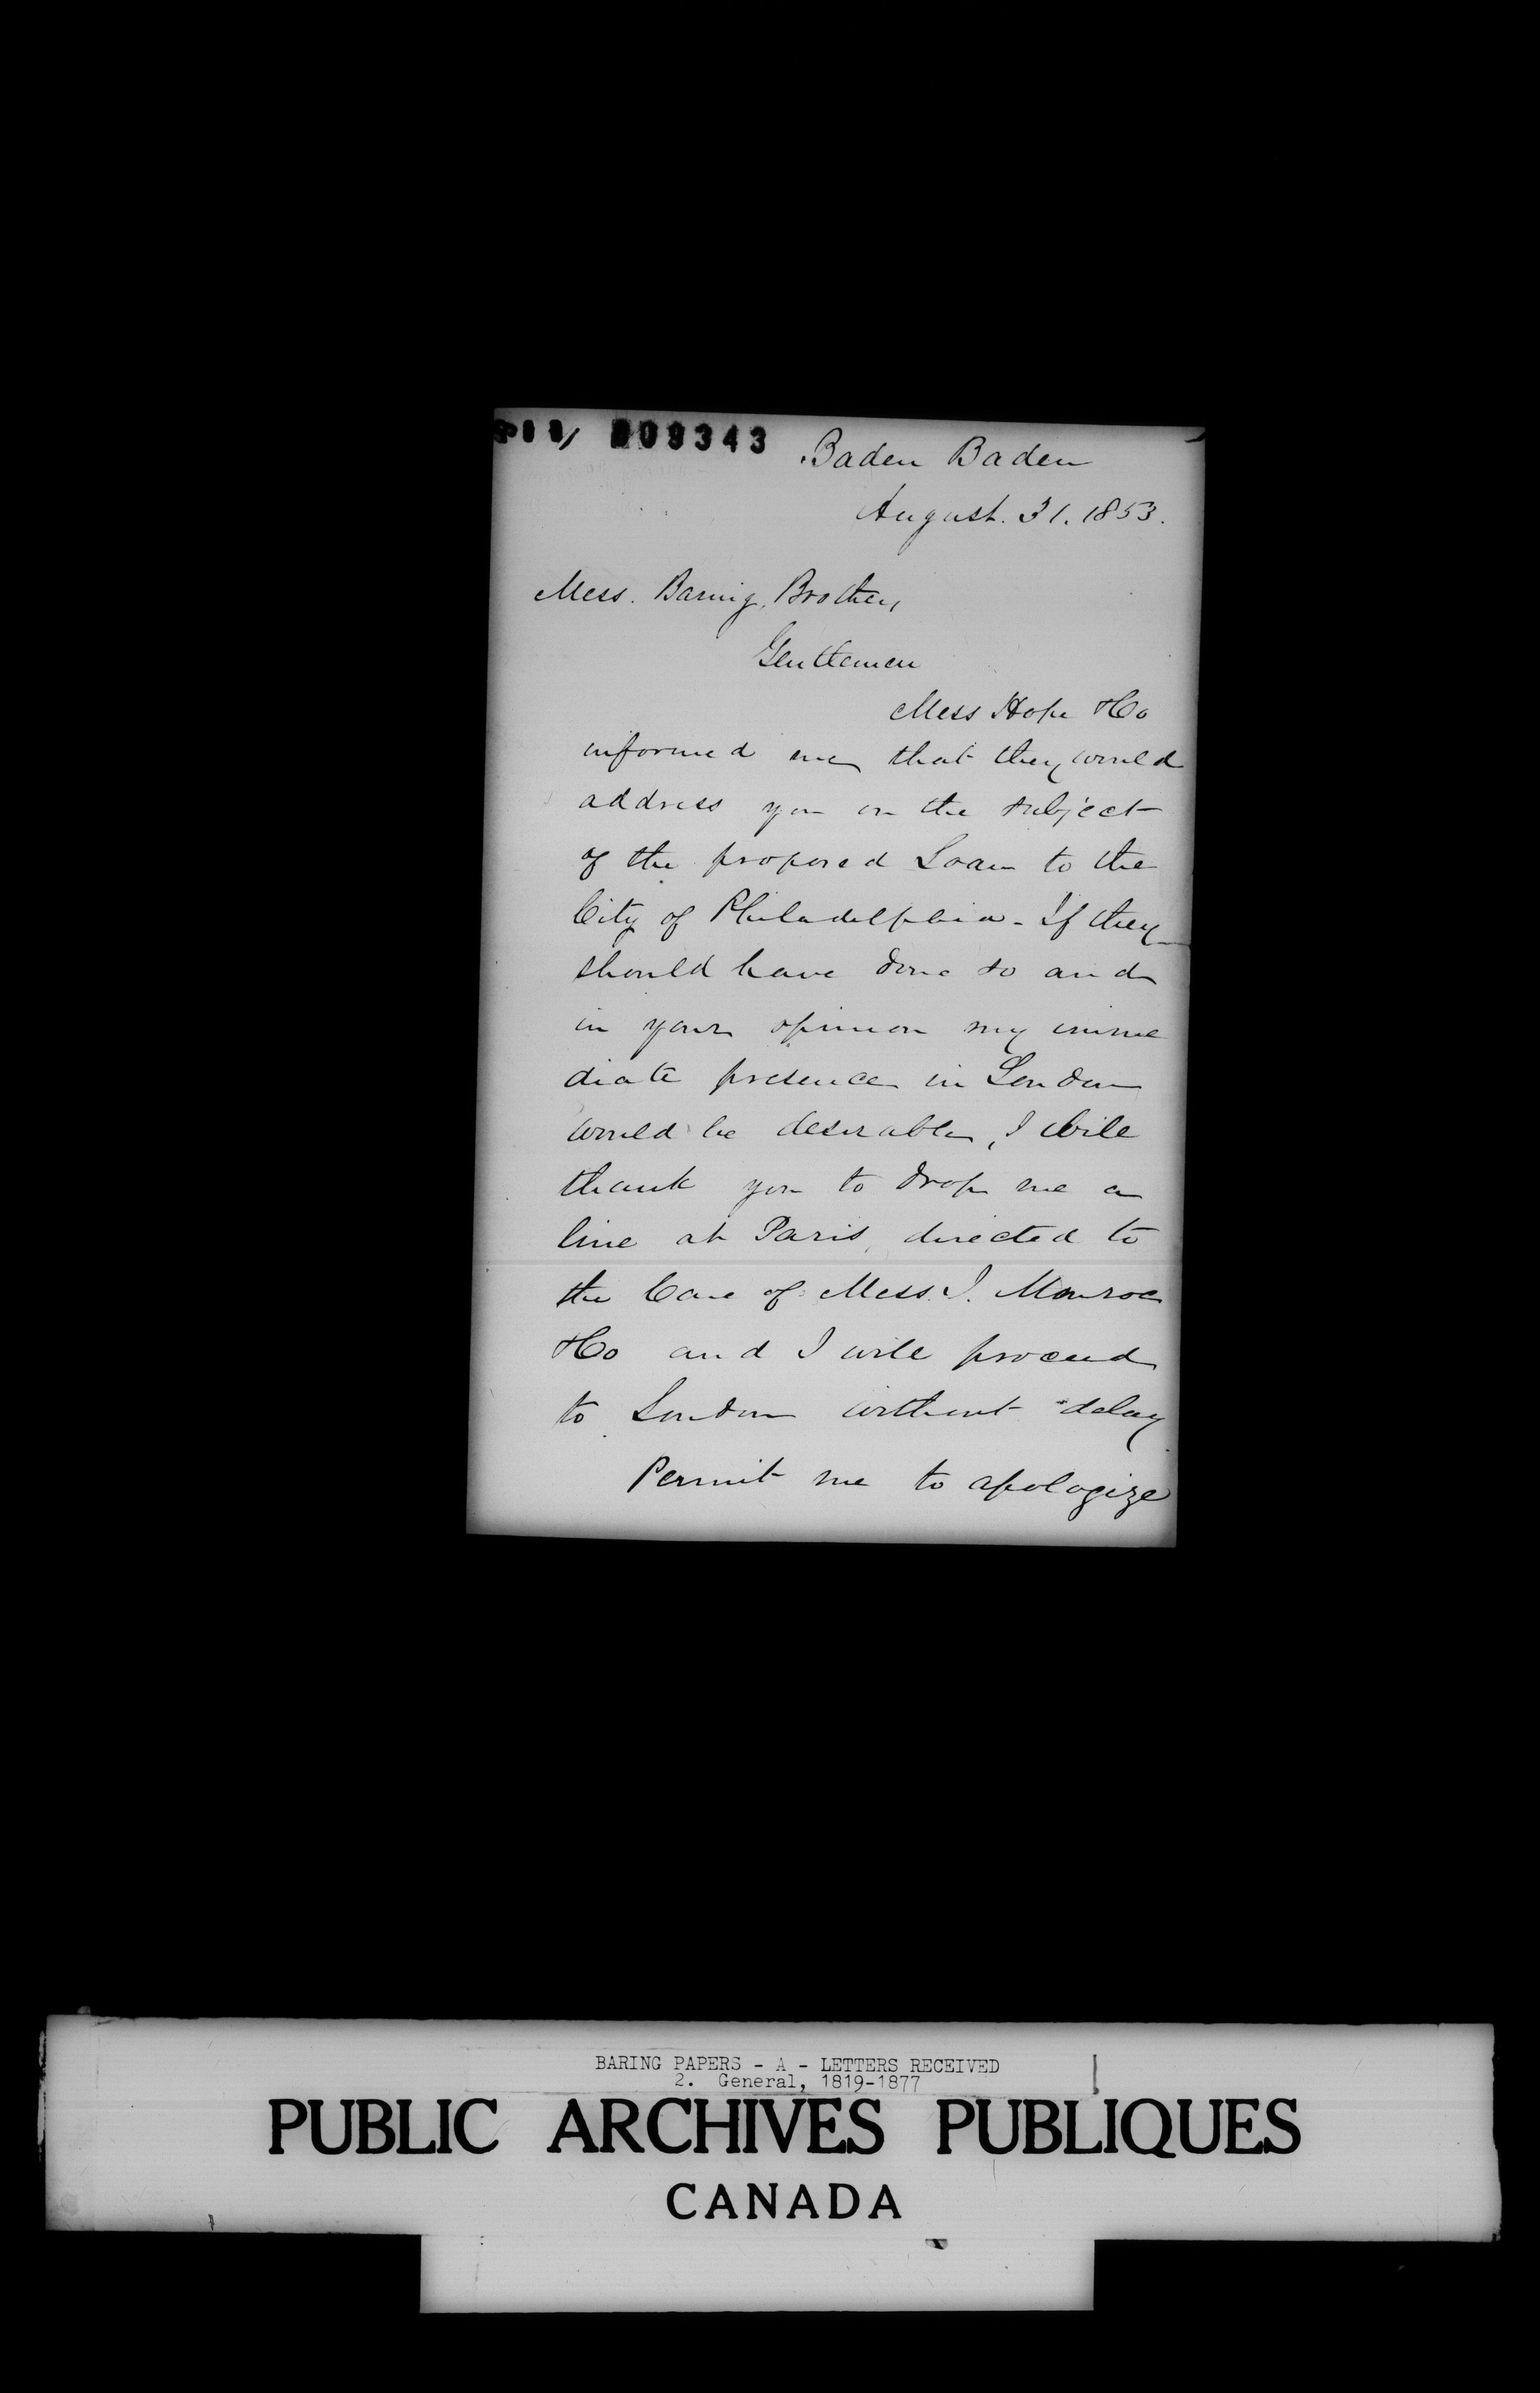 009343
Baden Baden
August. 31. 1853.
Mess. Baring, Brothers
Gentlemen
Mess Hope & Co
informed me that they would
address you on the subject
of the proposed Loan to the
City of Philadelphia - If they
should have done so and
in your opinion my imme
diate presence in London
would be desirable, I will
thank you to drop me a
line at Paris, directed to
the Care of Mess. J. Monroe
& Co and I will proceed
to London without delay
Permit me to apologize
BARING PAPERS - A - LETTERS RECEIVED
2. General, 1819-1877
PUBLIC ARCHIVES PUBLIQUES
CANADA